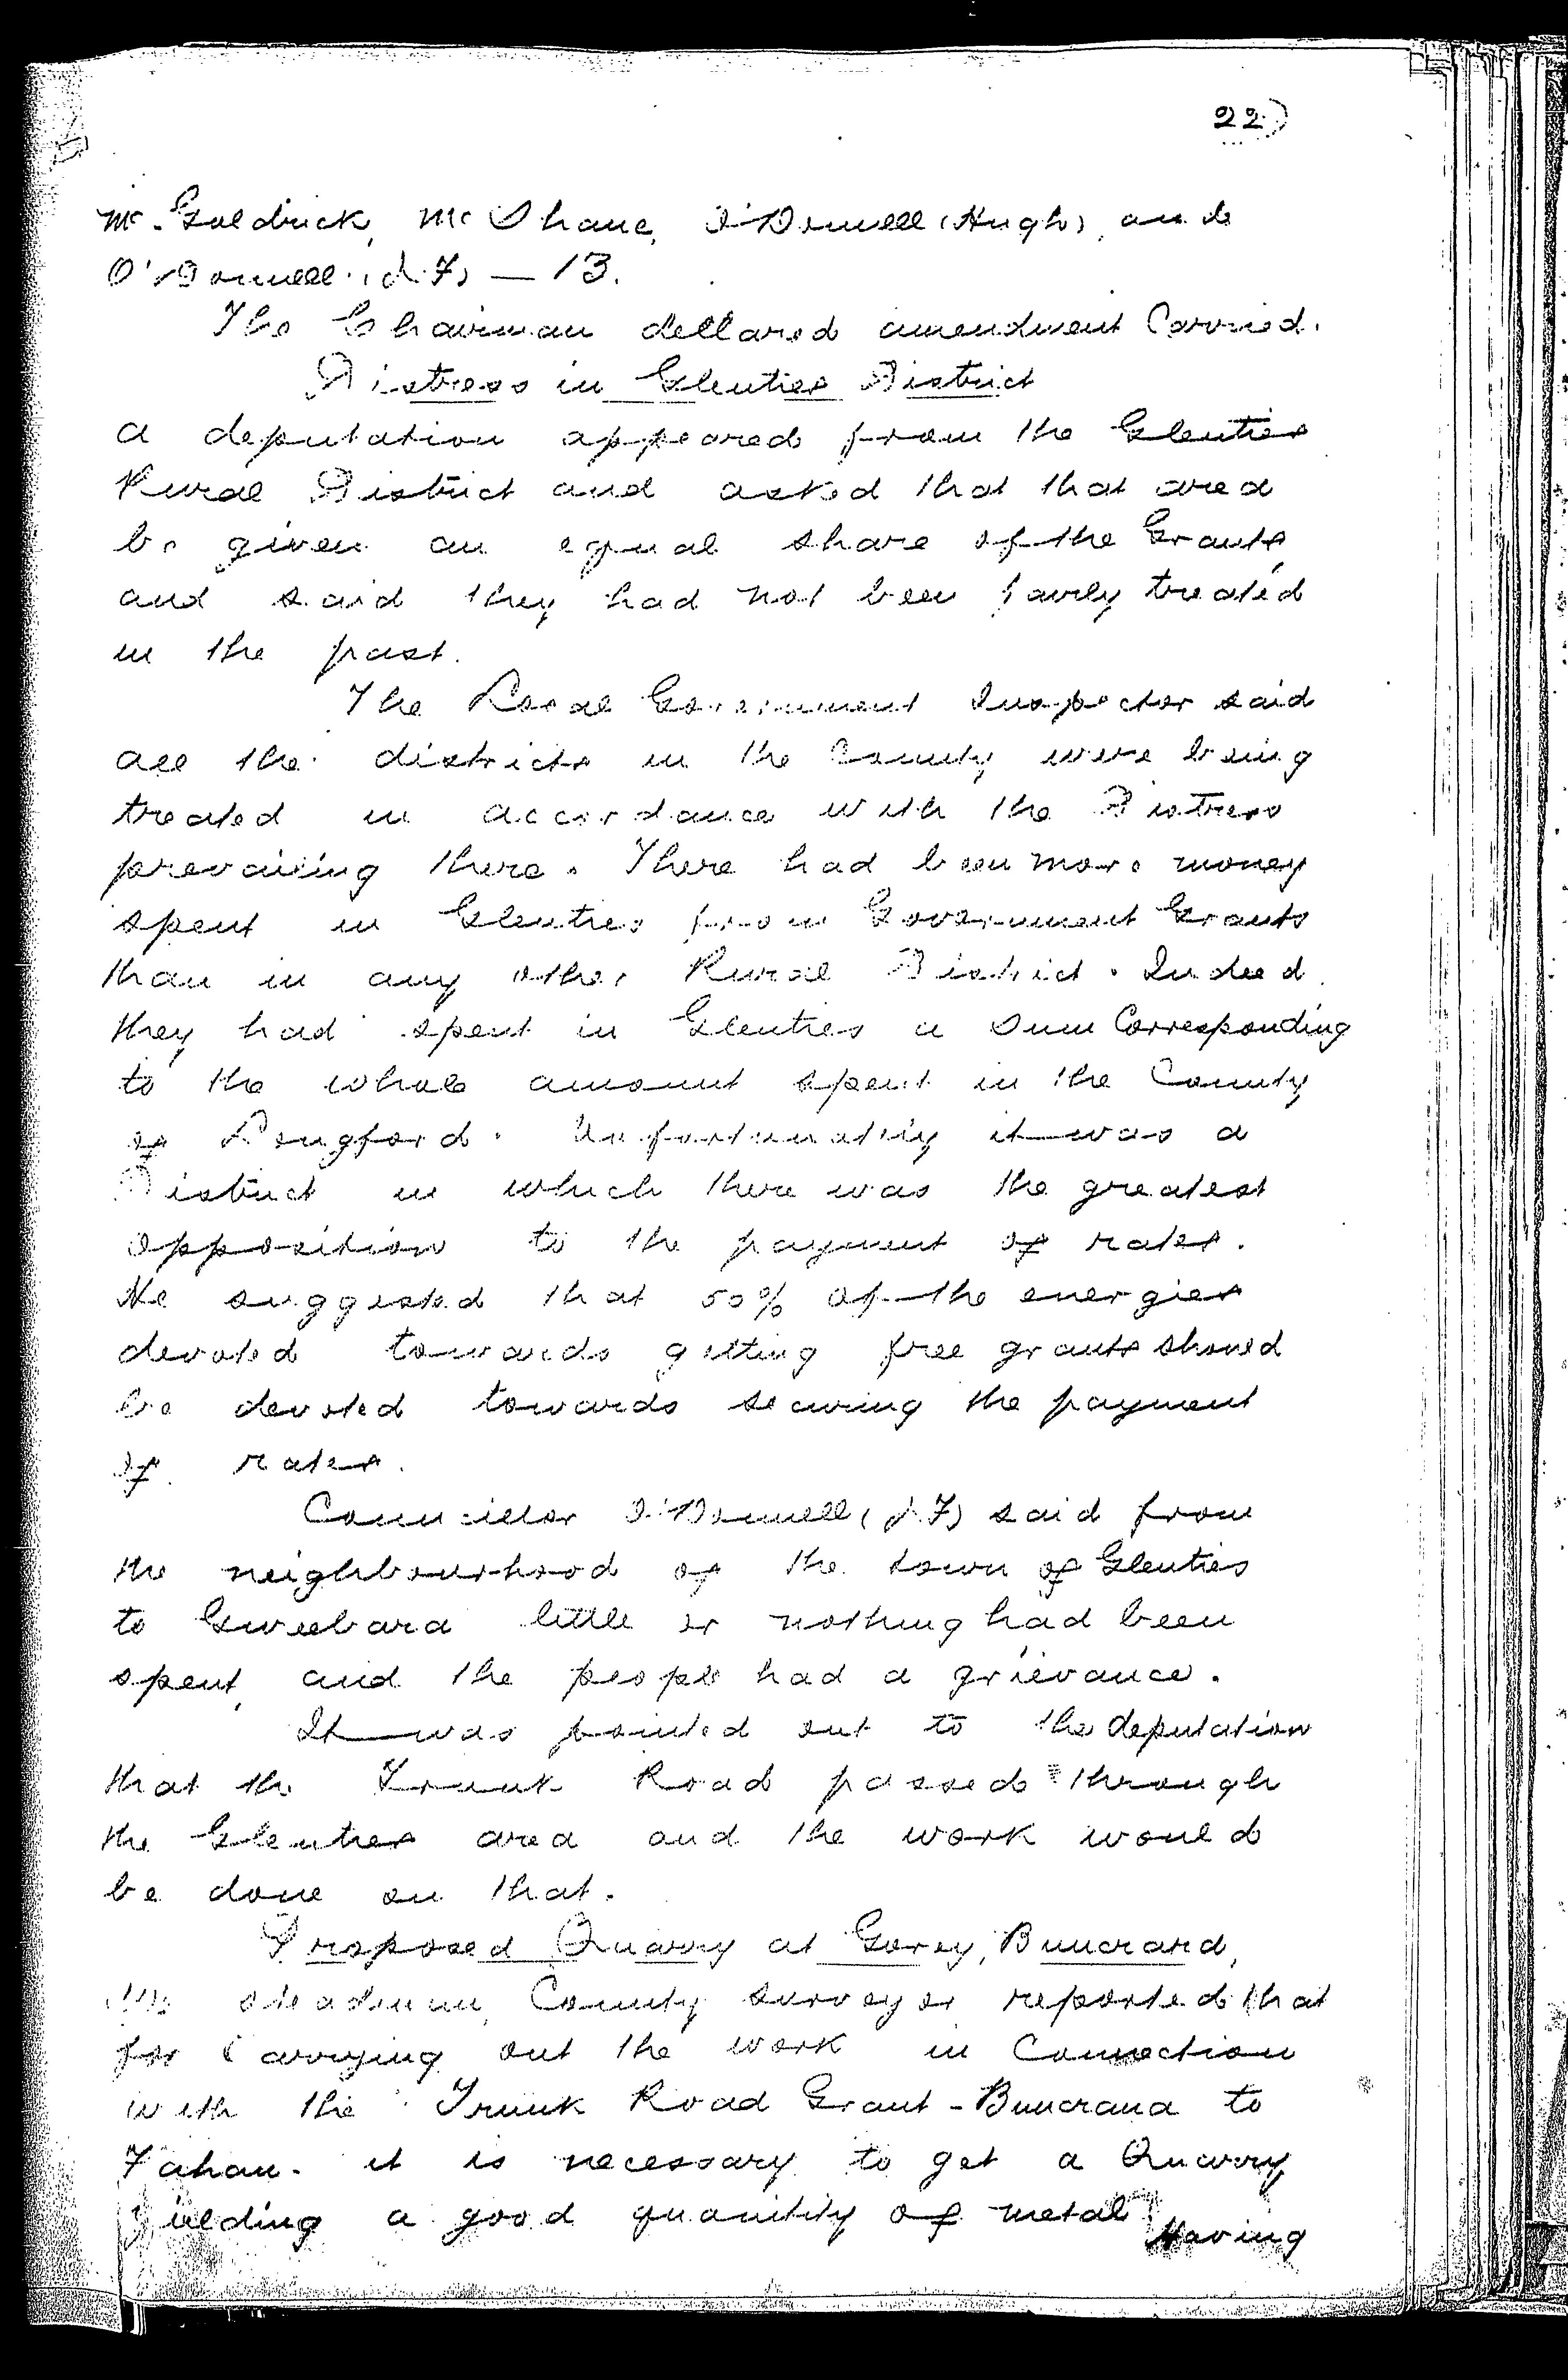 22)
Mc. Goldrick, Mc Shane, O'Donnell (Hugh), and
O'Donnell (J.F) — 13.
The Chairman declared amendment Carried.
Distress in Glenties District
A deputation appeared from the Glenties
Rural District and asked that that area
be given an equal share of the Grants
and said they had not been fairly treated
in the past.
The Local Government Inspector said
all the districts in the County were being
treated in accordance with the Distress
prevailing there. There had been more money
spent in Glenties from Government Grants
than in any other Rural District. Indeed
they had spent in Glenties a Sum Corresponding
to the whole amount spent in the County
of Longford. Unfortunately it was a
District in which there was the greatest
opposition to the payment of rates.
He suggested that 50% of the energies
devoted towards getting free grants should
be devoted towards securing the payment
of rates.
Councillor O'Donnell (J.F) said from
the neighbourhood of the town of Glenties
to Gweebara little or nothing had been
spent, and the people had a grievance.
It was pointed out to the deputation
that the Trunk Road passed through
the Glenties area and the work would
be done on that.
Proposed Quarry at Gorey, Buncrana,
County Surveyor reported that
for Carrying out the work in Connection
with the Trunk Road Grant - Buncrana to
Fahan. it is necessary to get a Quarry
yielding a good quantity of metal Having